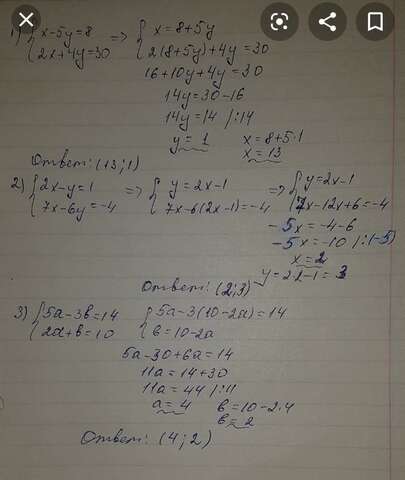 1) { x-5y=8 => { x=8+5y
{ 2x+4y=30 { 2(8+5y)+4y=30
16+10y+4y=30
14y=30-16
14y=14 /:14
y=1 x=8+5·1
x=13
Ответ: (13;1)
2) { 2x-y=1 => { y=2x-1 => { y=2x-1
{ 7x-6y=-4 { 7x-6(2x-1)=-4 { 7x-12x+6=-4
-5x=-4-6
-5x=-10 /:(-5)
x=2
y=2·2-1=3
Ответ: (2;3)
3) { 5a-3b=14 { 5a-3(10-2a)=14
{ 2a+b=10 { b=10-2a
5a-30+6a=14
11a=14+30
11a=44 /:11
a=4 b=10-2·4
b=2
Ответ: (4;2)